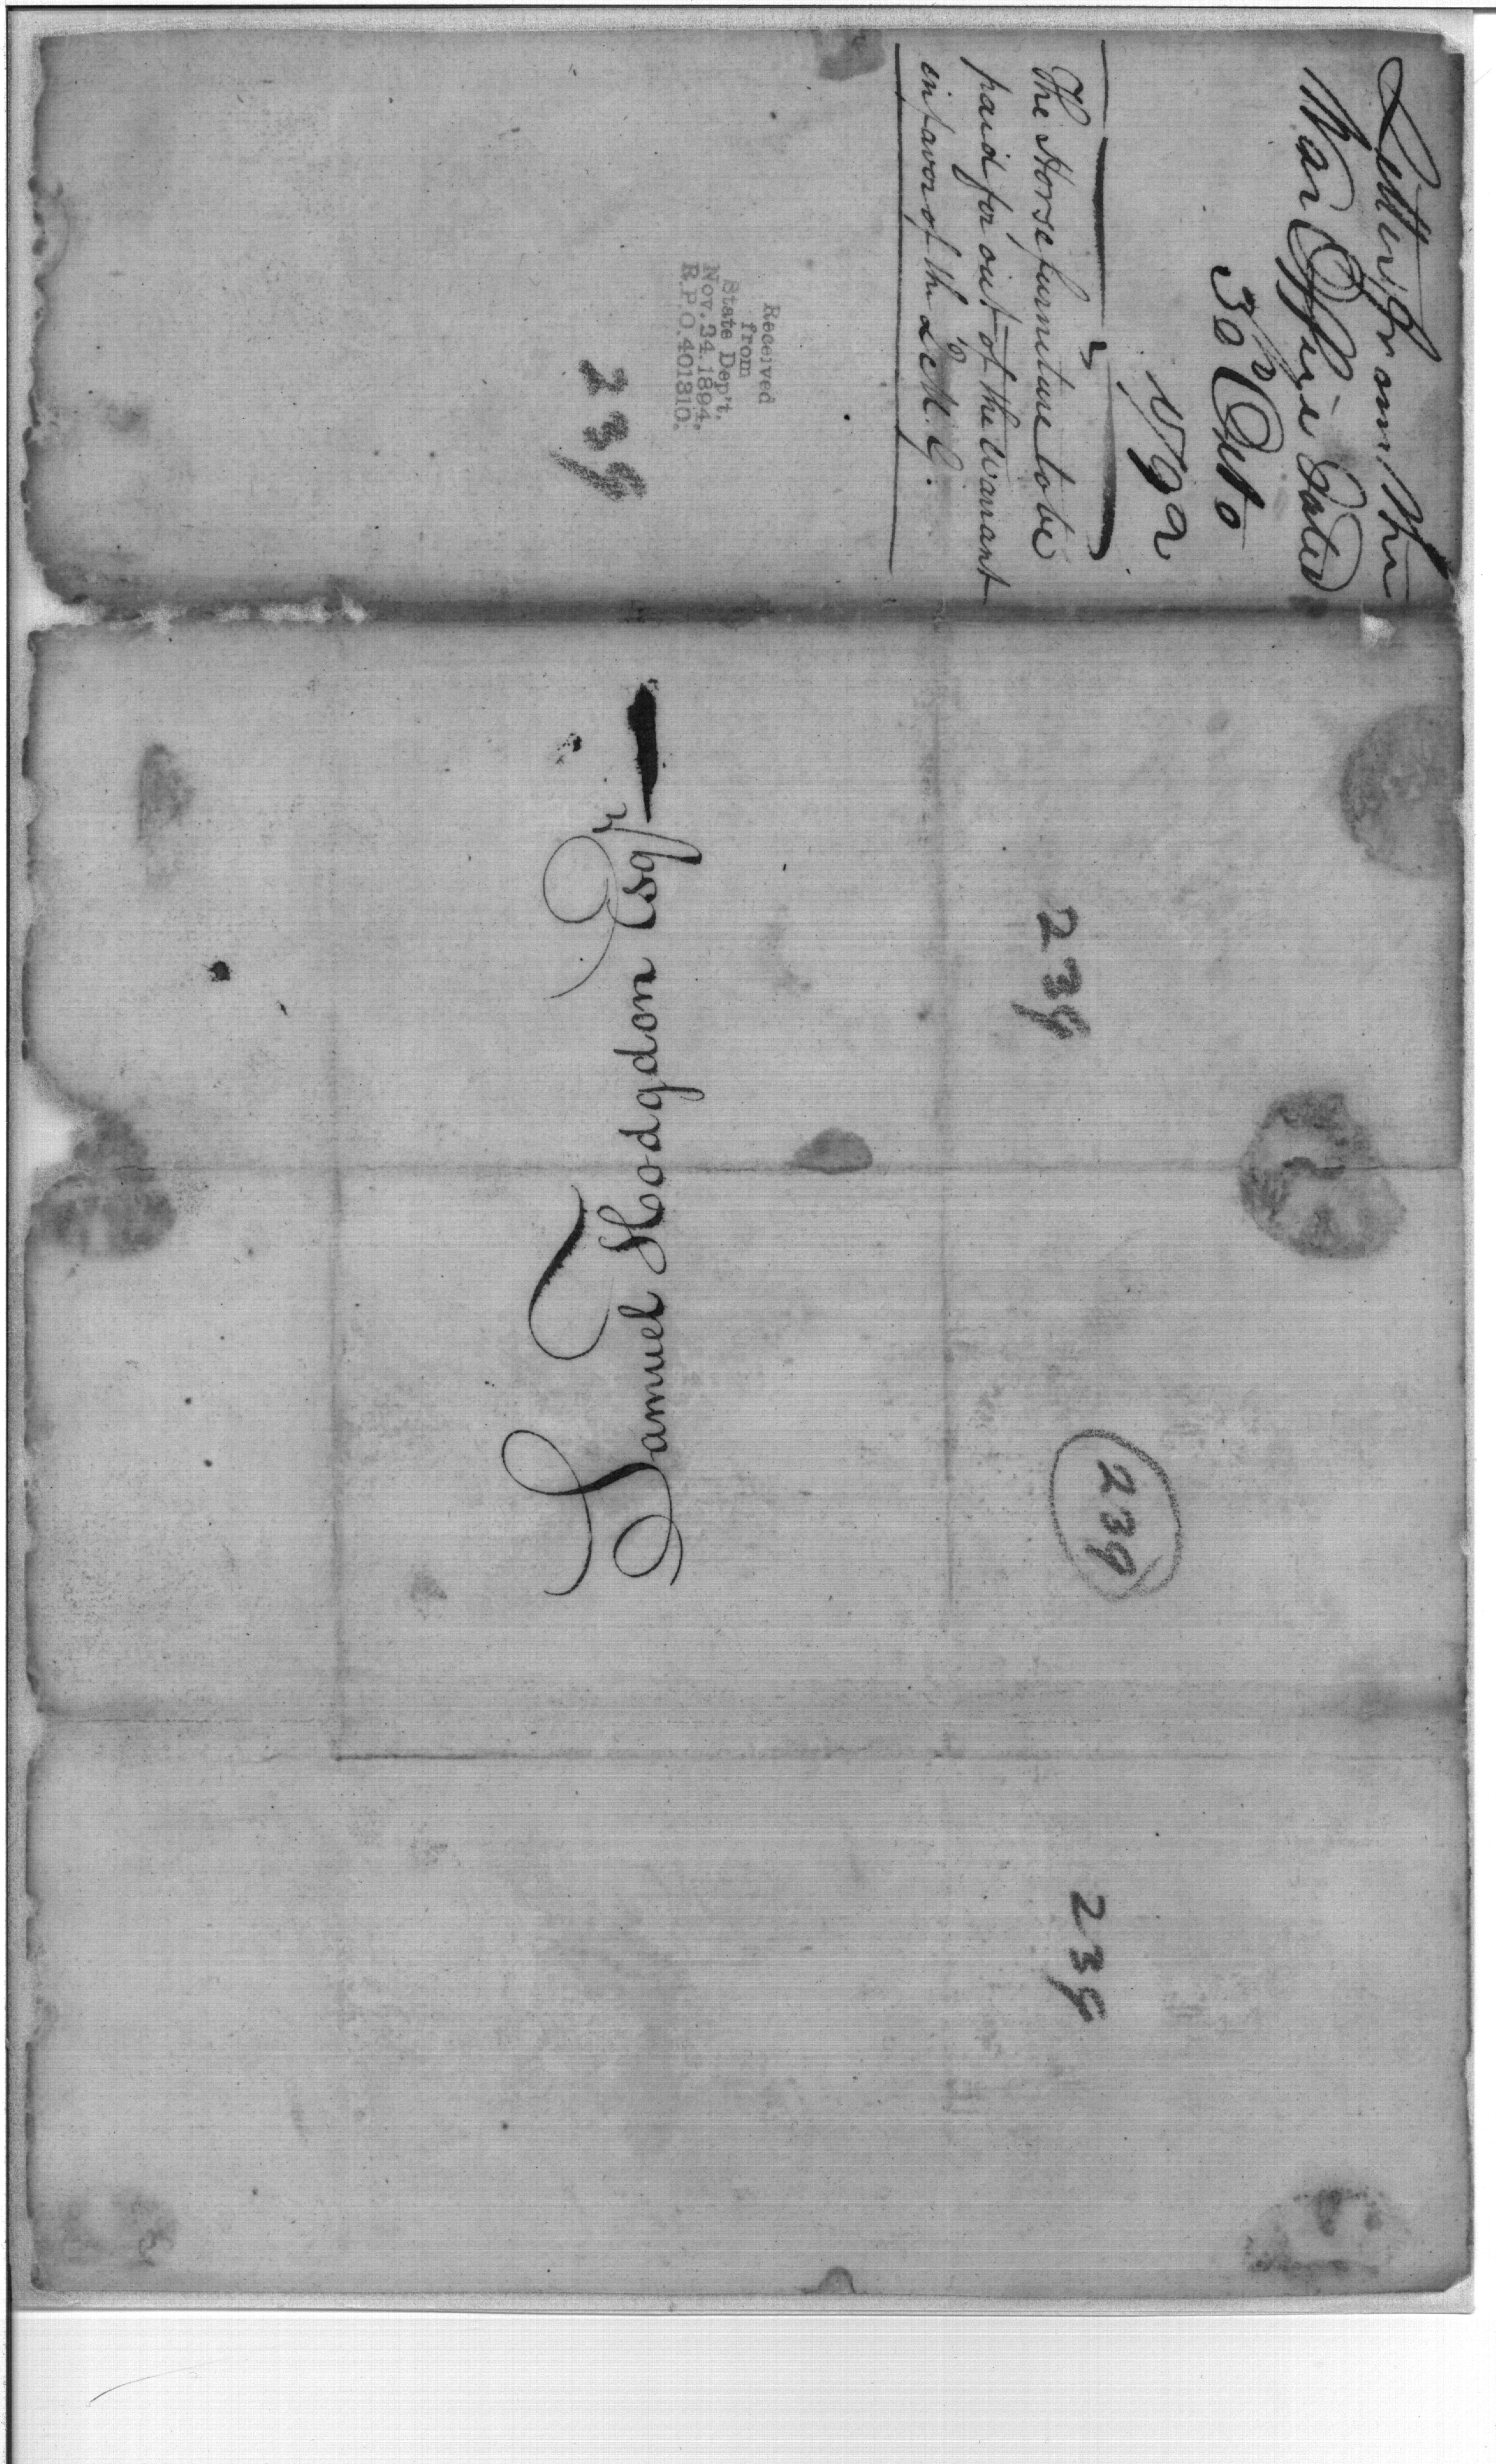 Letter from the
War Office dated
30th Octo
1792
The Horse furniture to be
paid for out of the warrant
in favor of the Q M. G.
Received
from
State Dep't,
Nov. 24. 1894.
R.P.O. 401310.
239
Samuel Hodgdon Esqr
239
239
239